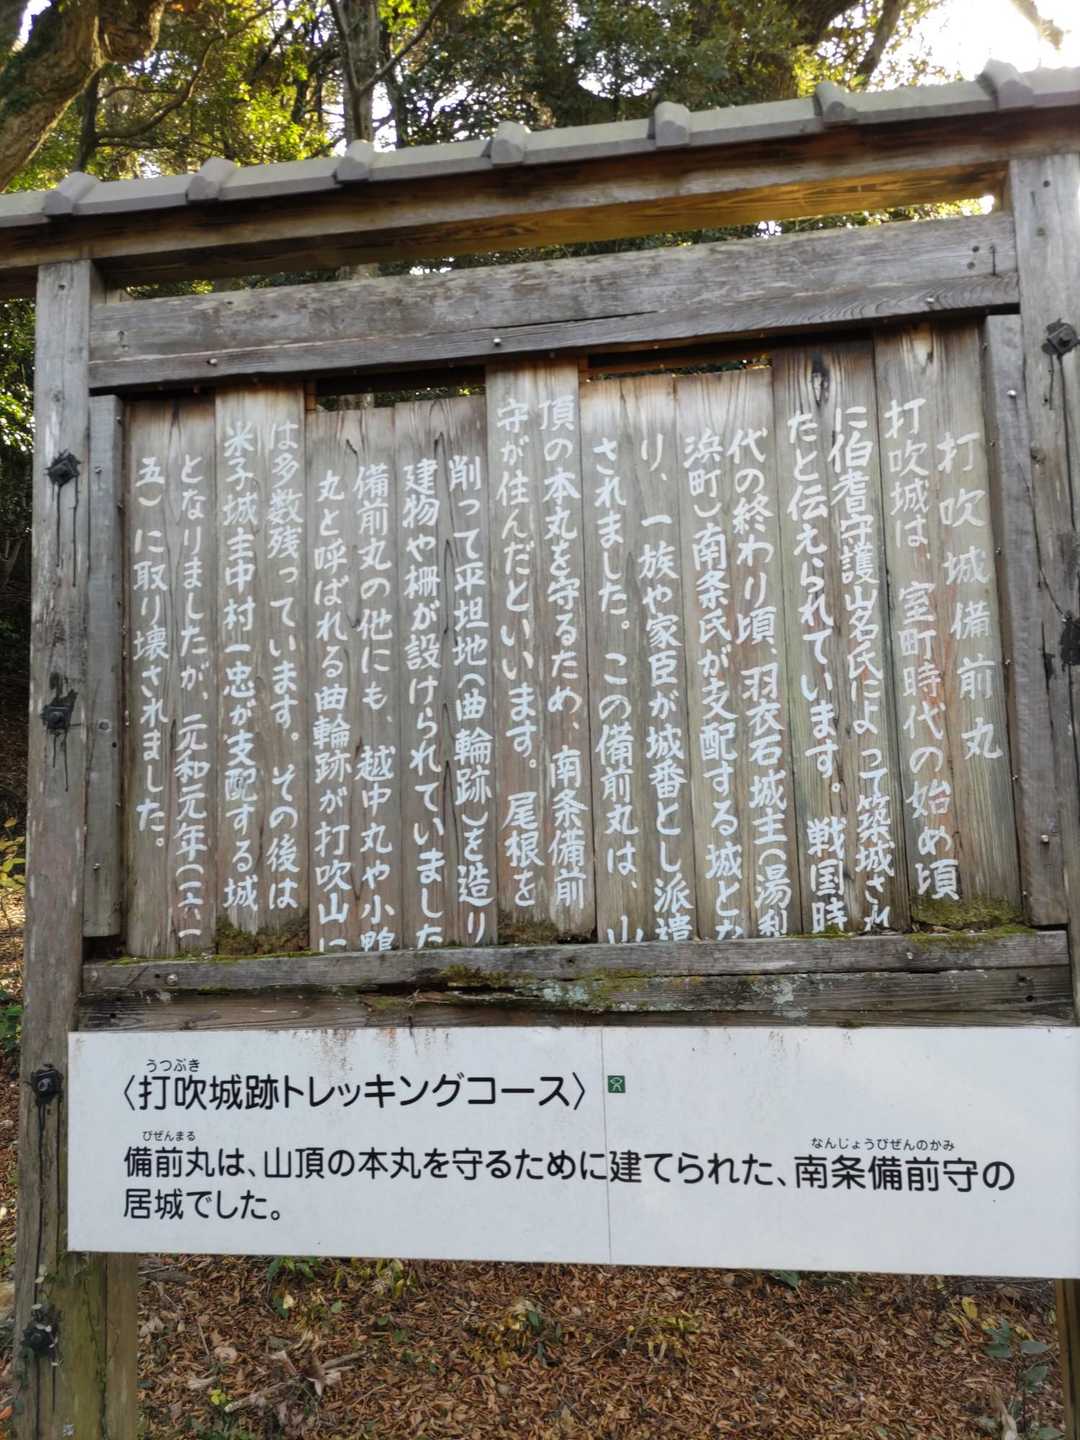 打吹城備前丸
打吹城は、室町時代の始め頃
に伯耆守護山名氏によって築城され
たと伝えられています。戦国時
代の終わり頃、羽衣石城主(湯梨
浜町)南条氏が支配する城とな
り、一族や家臣が城番とし派遣
されました。この備前丸は、山
頂の本丸を守るため、南条備前
守が住んだといいます。尾根を
削って平坦地(曲輪跡)を造り
建物や柵が設けられていました
備前丸の他にも、越中丸や小鴨
丸と呼ばれる曲輪跡が打吹山に
は多数残っています。その後は
米子城主中村一忠が支配する城
となりましたが、元和元年(一六一
五)に取り壊されました。
うつぶき
〈打吹城跡トレッキングコース〉
びぜんまる
なんじょうびぜんのかみ
備前丸は、山頂の本丸を守るために建てられた、南条備前守の
居城でした。